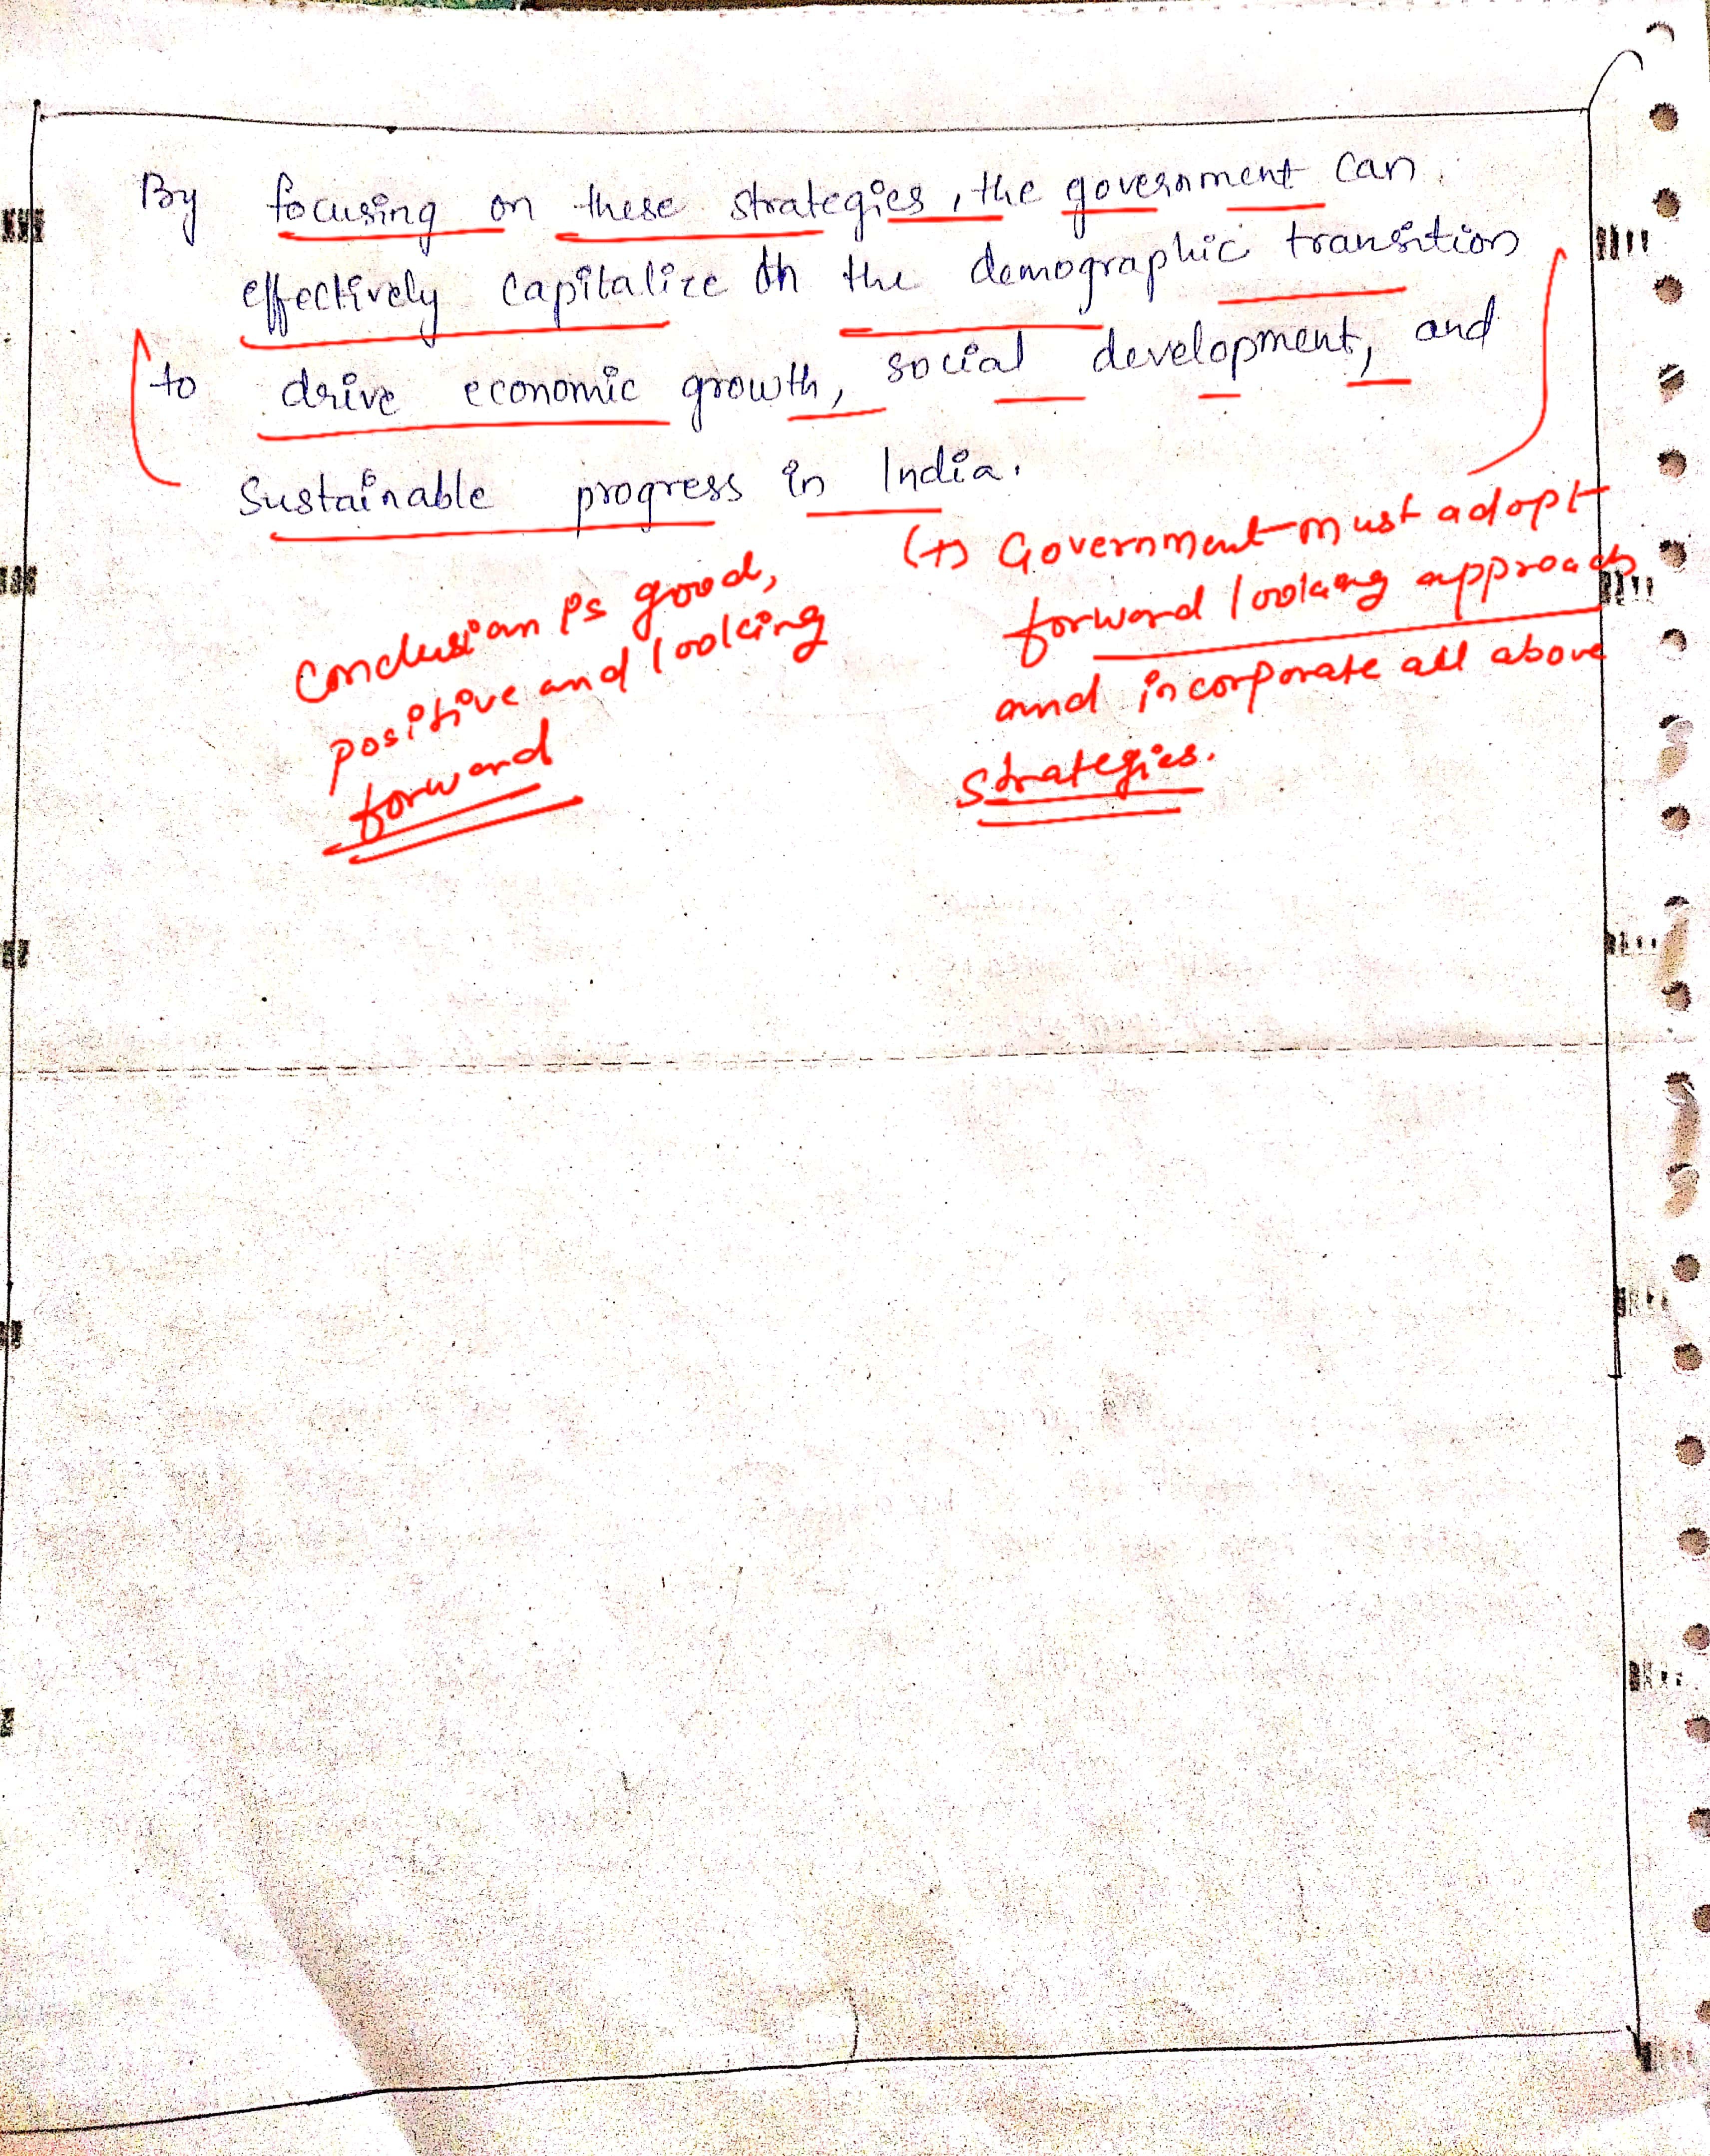 By focusing on these strategies, the government can
effectively capitalize on the demographic transition
to drive economic growth, social development, and
Sustainable progress in India.
Conclusion is good,
positive and looking
forward
(+) Government must adopt
forward looking approach
and incorporate all above
strategies.